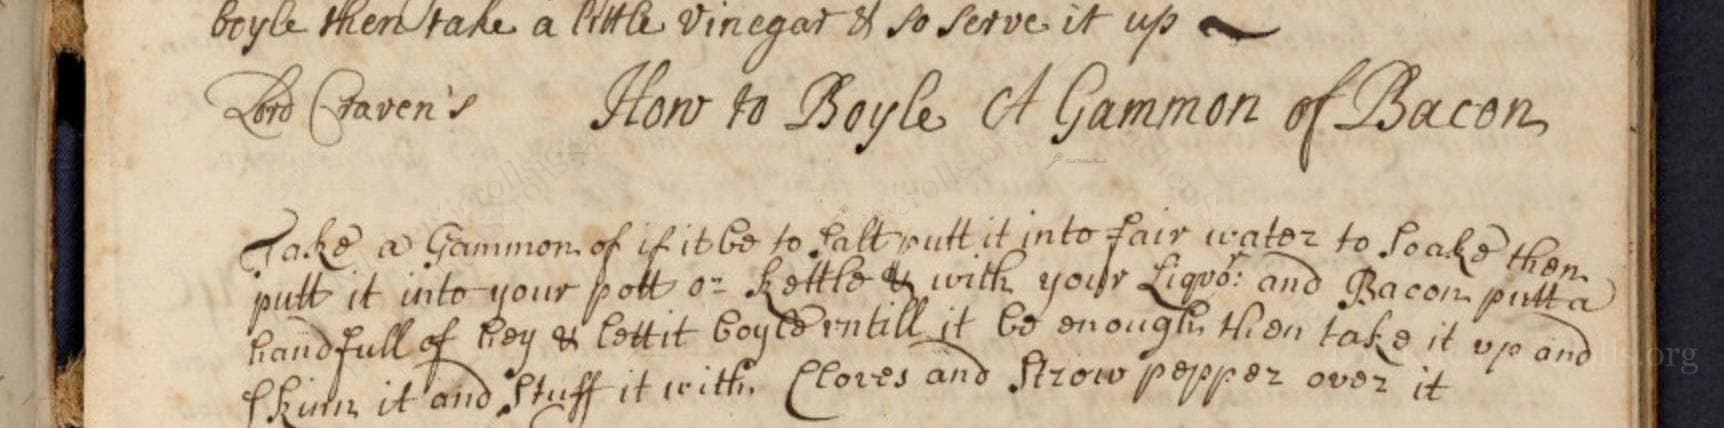 boyle then take a little vinegar & so serve it up
Lord Craven's How to Boyle A Gammon of Bacon
Take a Gammon of if it be to salt putt it into fair water to soake then
putt it into your pott or kettle & with your Liqvor: and Bacon putt a
handfull of hey & lett it boyle vntill it be enough then take it vp and
skinn it and stuff it with Cloves and strow pepper over it